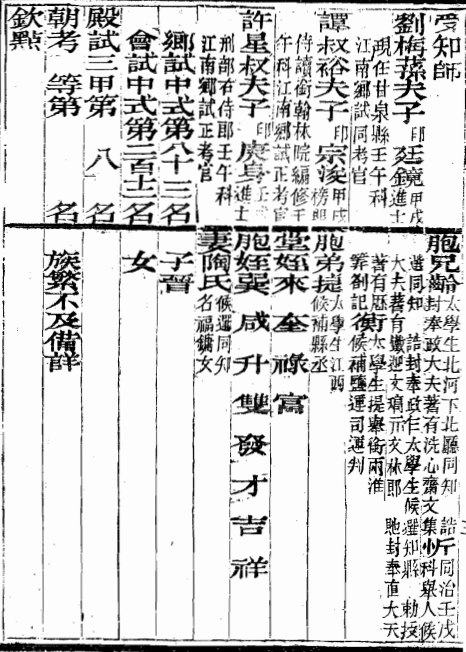 受知師
劉梅蓀夫子印廷鏡甲戌進士
現任甘泉縣壬午科
江南鄉試同考官
譚叔裕夫子印宗浚甲戌榜眼
侍讀銜翰林院編修壬
午科江南鄉試正考官
許星叔夫子印庚身進士
刑部右侍郎壬午科
江南鄉試正考官
鄉試中式第八十三名
會試中式第二百十一名
殿試三甲第 八 名
朝考 等第 名
欽點
胞兄齡 太學生北河下北廳同知 誥
封奉政大夫著有洗心齋文集
忻 同治壬戌
科舉人候
選同知 誥封奉政
大夫著有 迎文稿
仁太學生候選知縣 勅授
文林郎 貤封奉直大夫
著有歷
算劄記
衡 太學生提舉銜兩淮
候補鹽運司運判
胞弟提 太學生江西
候補縣丞
堂姪來 奎 祿 富
胞姪巽 咸 升 雙 發 才 吉 祥
妻陶氏 候選同知
名福鏞女
子晉
女
族繁不及備詳